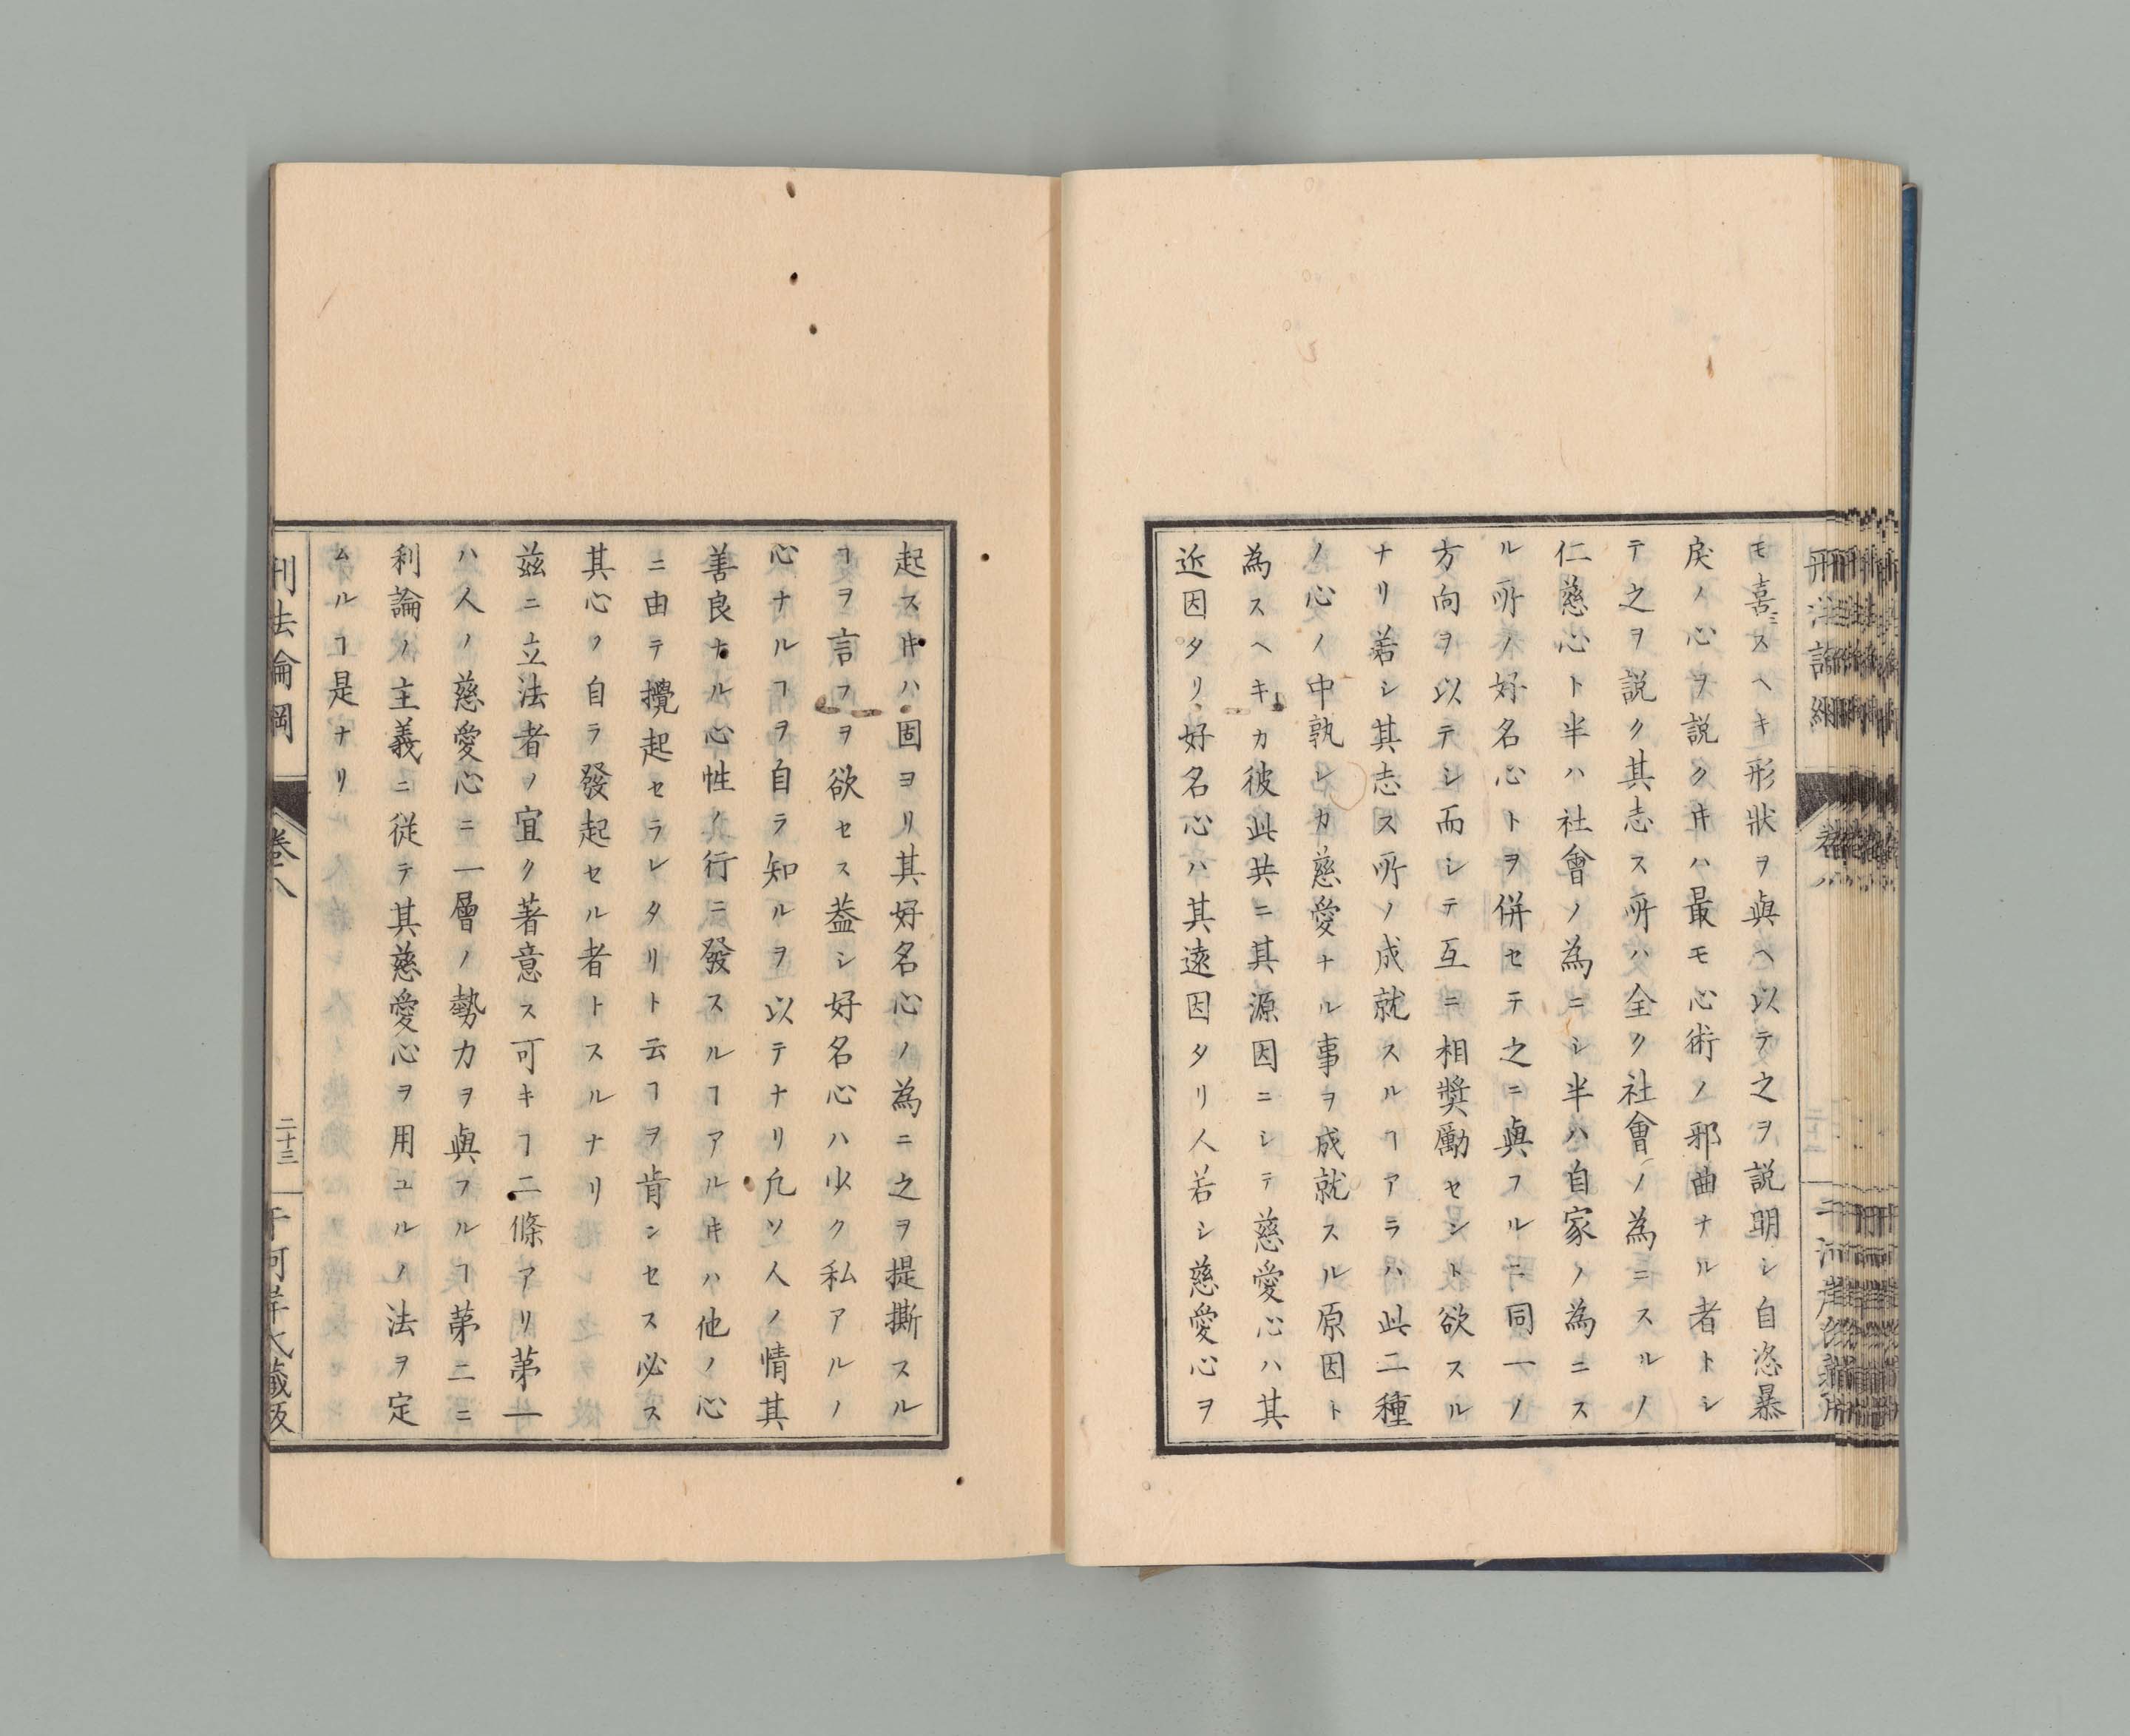 モ喜スヘキ形狀ヲ與ヘ以テ之ヲ説明シ自恣暴
戾ノ心ヲ説クヰハ最モ心術ノ邪曲ナル者トシ
テ之ヲ説ク其志ス所ハ全ク社會ノ為ニスルノ
仁慈心ト半ハ社會ノ為ニシ半ハ自家ノ為ニス
ル所ノ好名心トヲ併セテ之ニ與フルニ同一ノ
方向ヲ以テシ而シテ互ニ相奬勵セシト欲スル
ナリ若シ其志ス所ノ成就スルヿアラハ此二種
ノ心ノ中孰レカ慈愛ナル事ヲ成就スル原因ト
為スヘキカ彼此共ニ其源因ニシテ慈愛心ハ其
近因タリ好名心ハ其遠因タリ人若シ慈愛心ヲ
起スヰハ固ヨリ其好名心ノ為ニ之ヲ提撕スル
ヿヲ言フヲ欲セス葢シ好名心ハ少ク私アルノ
心ナルヿヲ自ラ知ルヲ以テナリ凡ソ人ノ情其
善良ナル心性ノ行ニ發スルヿアルヰハ他ノ心
ニ由テ攪起セラレタリト云ヿヲ肯ンセス必ス
其心ノ自ラ發起セル者トスルナリ
茲ニ立法者ノ宜ク著意ス可キヿ二條アリ第一
ハ人ノ慈愛心ニ一層ノ勢力ヲ與フルヿ第二ニ
利論ノ主義ニ從テ其慈愛心ヲ用ユルノ法ヲ定
ムルヿ是ナリ
刑法論綱
卷八
二十三